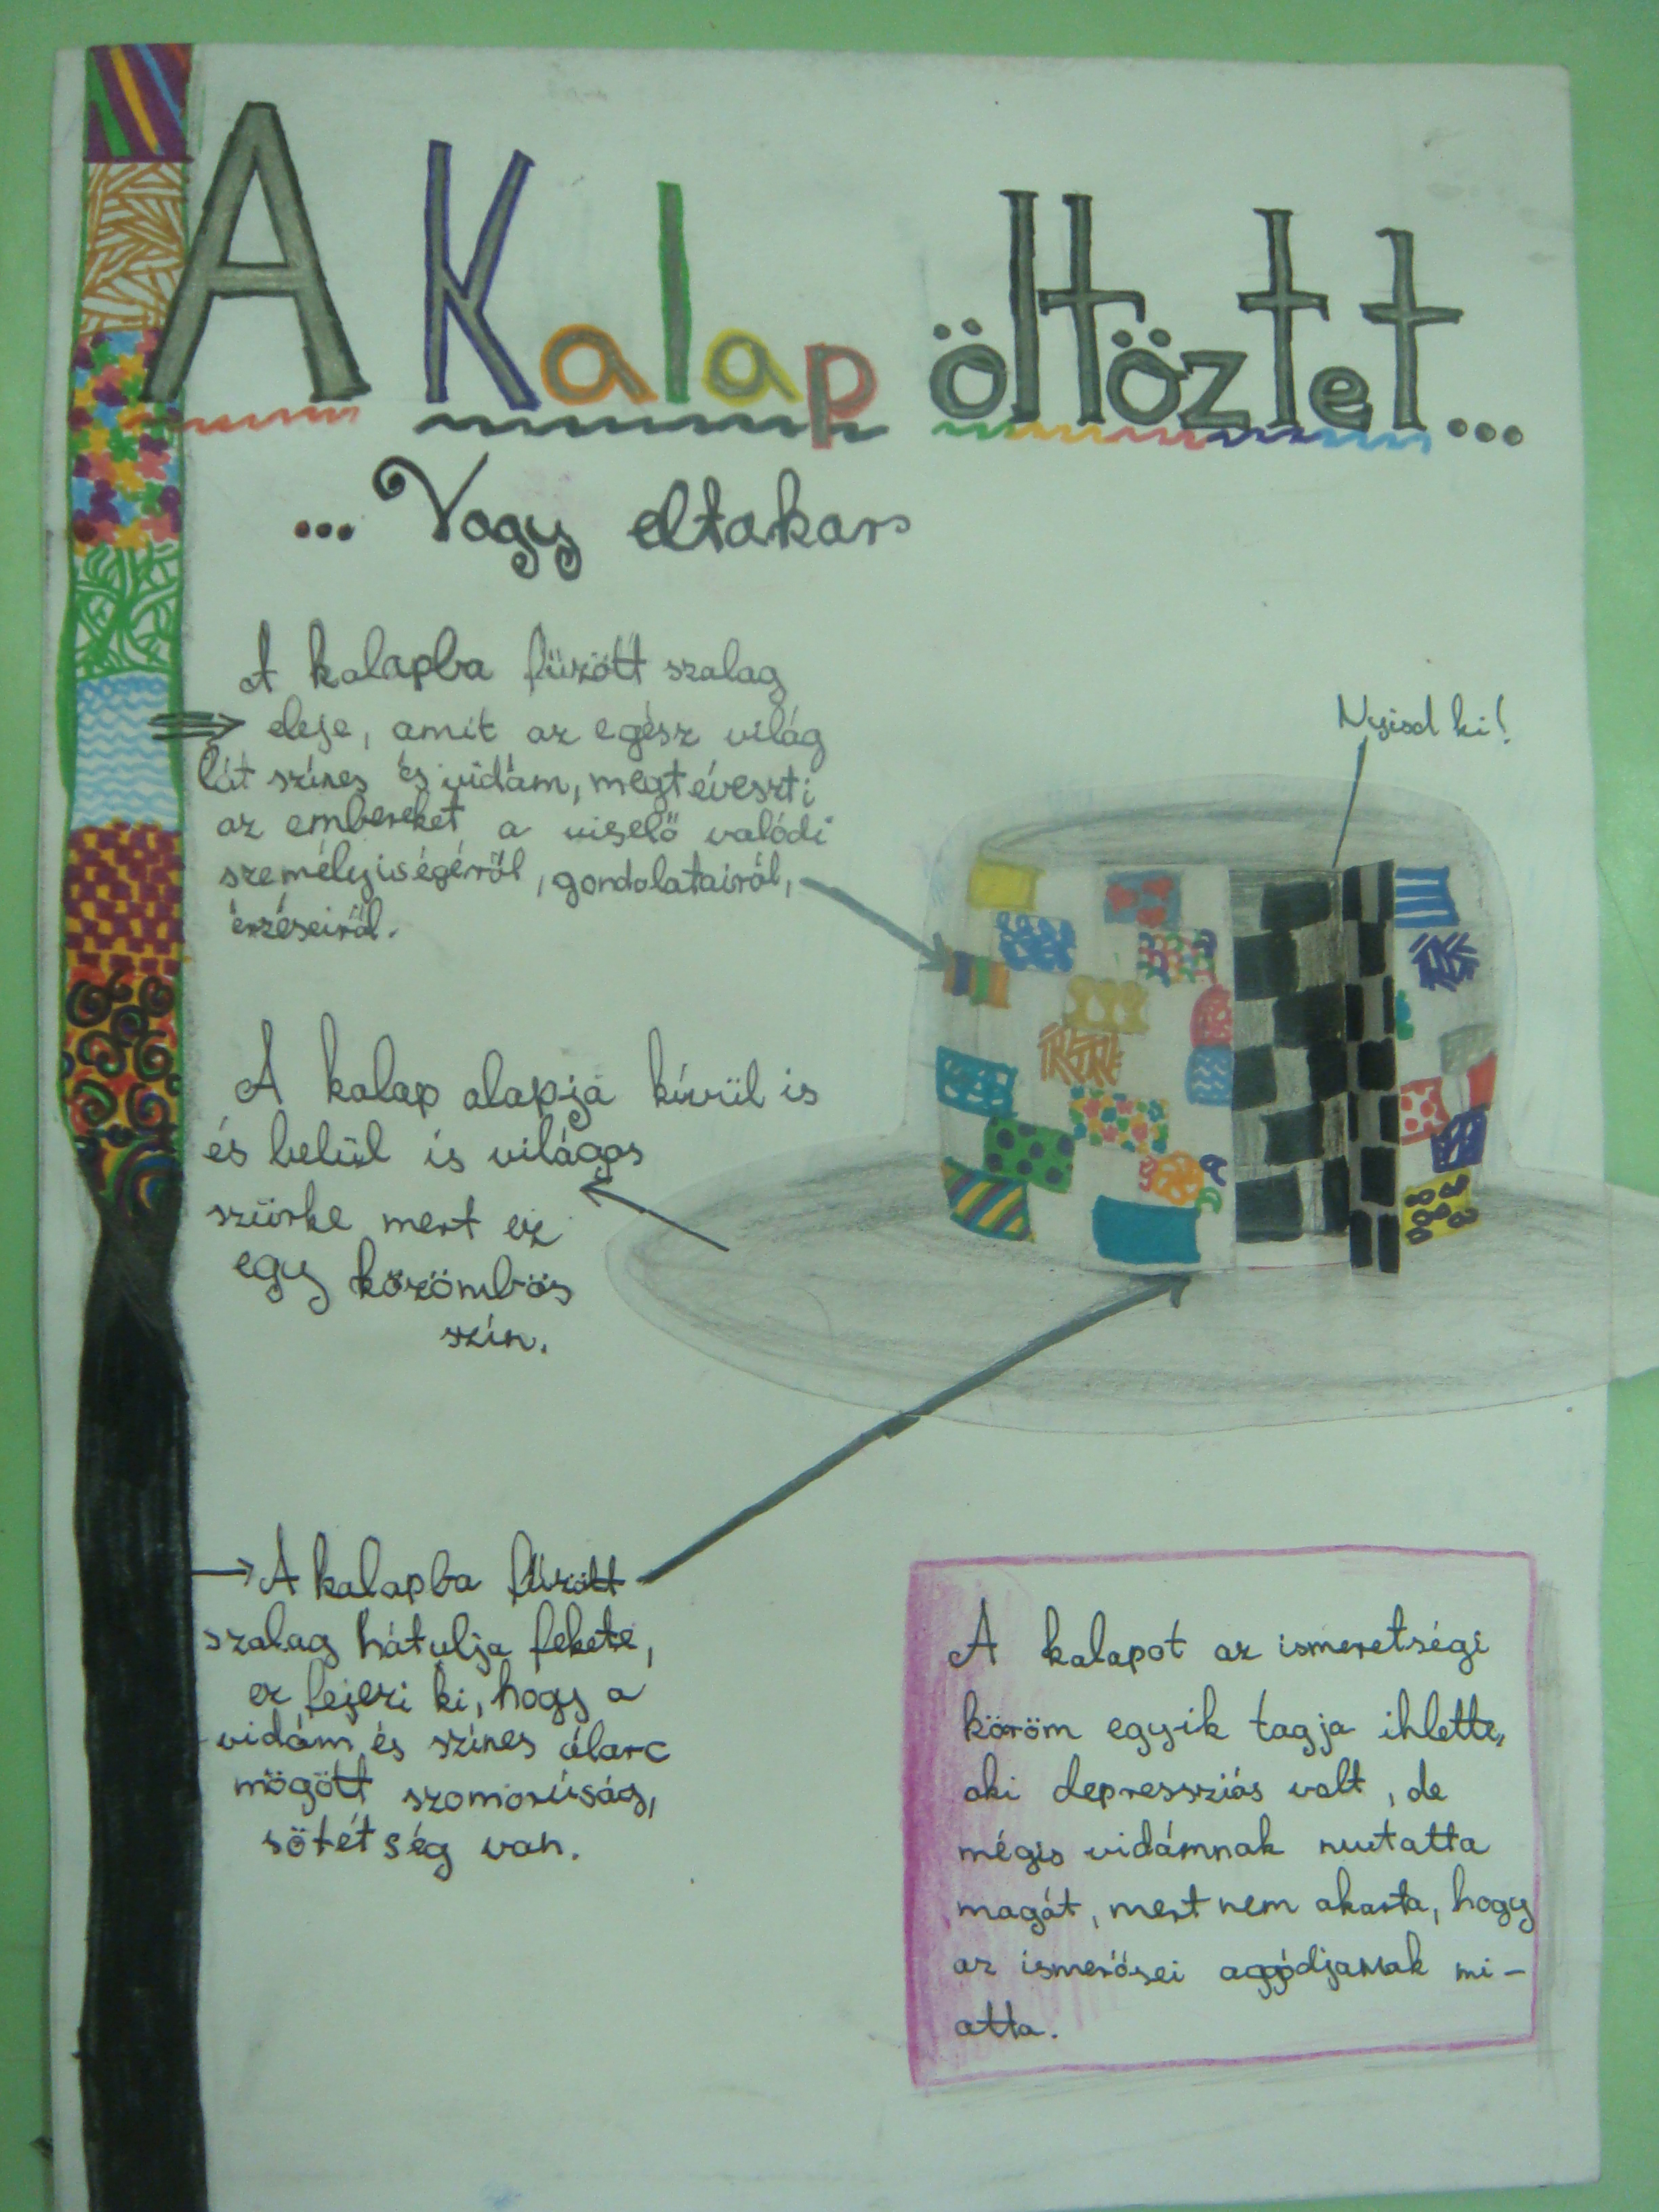 A Kalap öltöztet...
... Vagy eltakar
A kalapba fűzött szalag
eleje, amit az egész világ
lát színes és vidám, megtéveszti
az embereket a viselő valódi
személyiségéről, gondolatairól,
érzéseiről.
Nyisd ki!
A kalap alapja kívül is
és belül is világos
szürke mert ez
egy közömbös
szín.
A kalapba fűzött
szalag hátulja fekete,
ez fejezi ki, hogy a
vidám és színes álarc
mögött szomorúság,
sötétség van.
A kalapot az ismeretségi
köröm egyik tagja ihlette,
aki depressziós volt, de
mégis vidámnak mutatta
magát, mert nem akarta, hogy
az ismerősei aggódjanak mi-
atta.